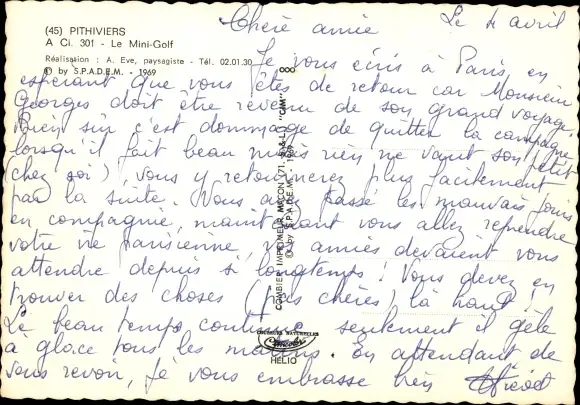 (45) PITHIVIERS
A Ci. 301 - Le Mini-Golf
Réalisation : A. Eve, paysagiste - Tél. 02.01.30
© by S.P.A.D.E.M. - 1969
Chère amie Le 4 avril
Je vous écris à Paris en
espérant que vous êtes de retour car Monsieur
Georges doit être revenu de son grand voyage.
Bien sûr c'est dommage de quitter la campagne
lorsqu'il fait beau mais rien ne vaut son petit
(chez soi), vous y retournerez plus facilement
par la suite. Vous avez passé les mauvais jours
en compagnie maintenant vous allez reprendre
votre vie parisienne, vos amies devaient vous
attendre depuis si longtemps ! Vous devez en
trouver des choses (plus chères) là haut !
Le beau temps continue seulement il gèle
à glace tous les matins. En attendant de
vous revoir, je vous embrasse bien
COMBIER IMPRIMEUR MACON (71, S.-&-L.) "CIM"
© by S.P.A.D.E.M. 1969
COULEURS NATURELLES
Combier
HELIO